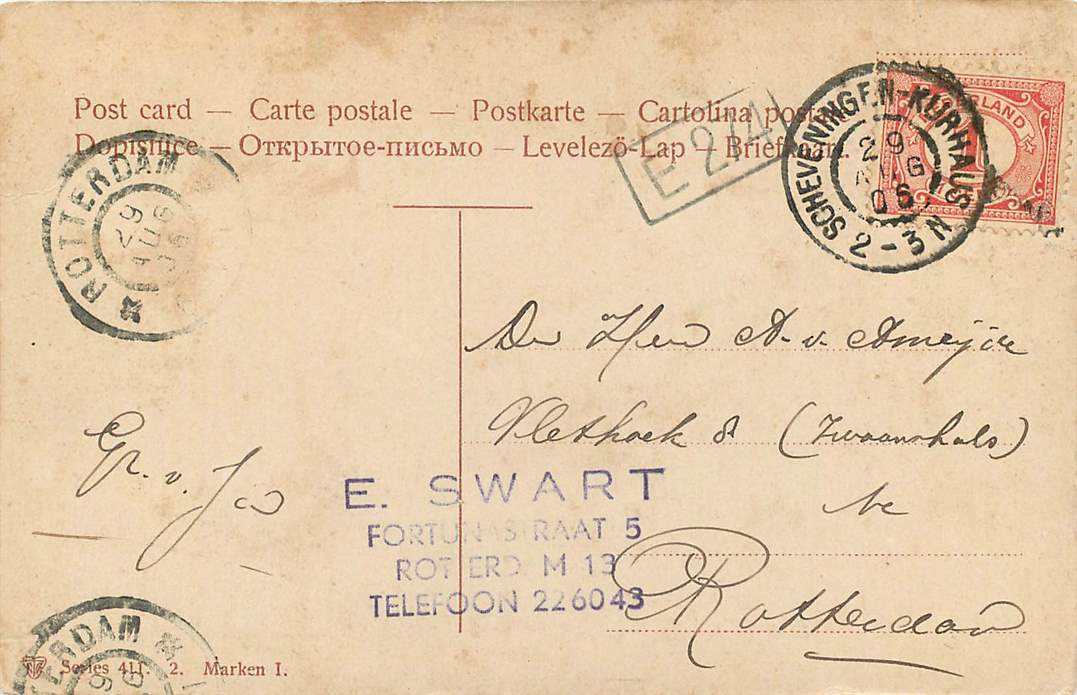 Post card — Carte postale — Postkarte — Cartolina post
Dopisnice — Открытое-письмо — Levelező-Lap — Brief
E 2/4
SCHEVENINGEN-KURHAUS
29 AUG 06
2-3N
LAND
ROTTERDAM
29 AUG 06
De Heer A. v. Ameijde
Vlethoek 8 (Zwaanshals)
te
Rotterdam
Gr. v. Jo
E. SWART
FORTUNASTRAAT 5
ROTTERD M 13
TELEFOON 226043
ERDAM
Series 411. 2. Marken I.